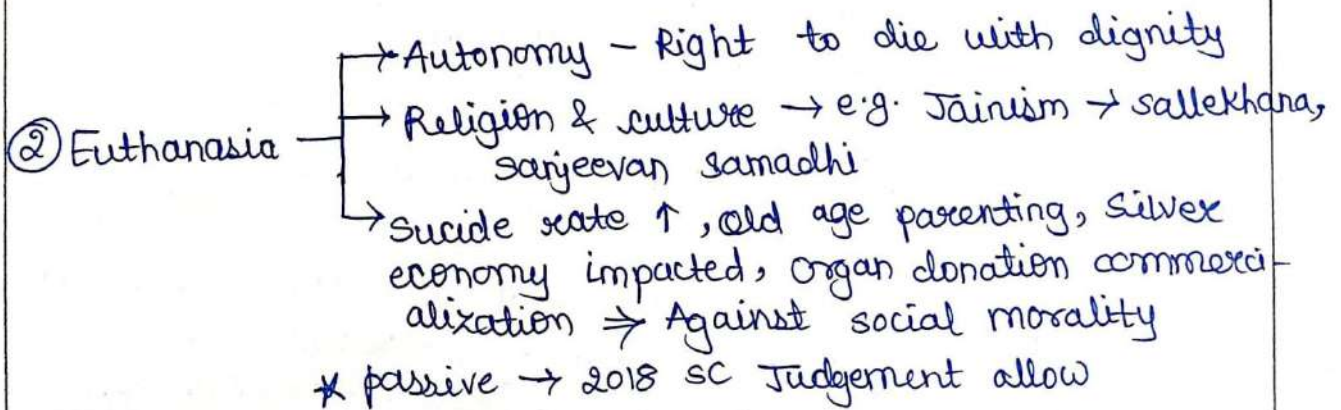 → Autonomy - Right to die with dignity
② Euthanasia → Religion & culture → e.g. Jainism → sallekhana,
sanjeevan samadhi
→ Sucide rate ↑, old age parenting, Silver
economy impacted, organ donation commerci-
alization ⇒ Against social morality
* passive → 2018 SC Judgement allow